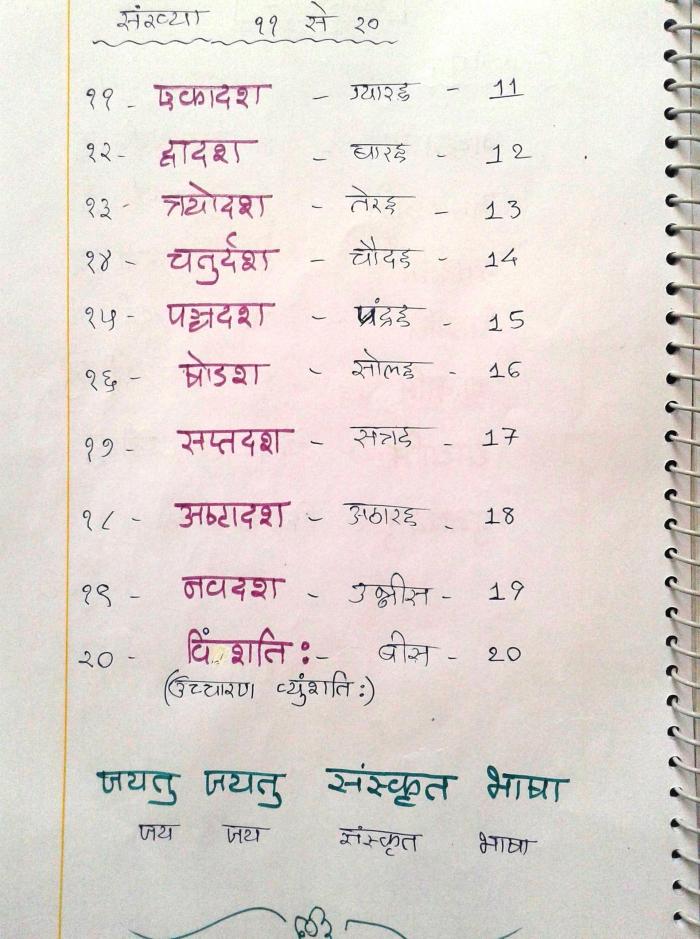 संख्या ११ से २०
११ - एकादश - ग्यारह - 11
१२ - द्वादश - बारह - 12
१३ - त्रयोदश - तेरह - 13
१४ - चतुर्दश - चौदह - 14
१५ - पञ्चदश - पंद्रह - 15
१६ - षोडश - सोलह - 16
१७ - सप्तदश - सत्रह - 17
१८ - अष्टादश - अठारह - 18
१९ - नवदश - उन्नीस - 19
२० - विंशति: - बीस - 20
(उच्चारण व्युंशति:)
जयतु जयतु संस्कृत भाषा
जय जय संस्कृत भाषा